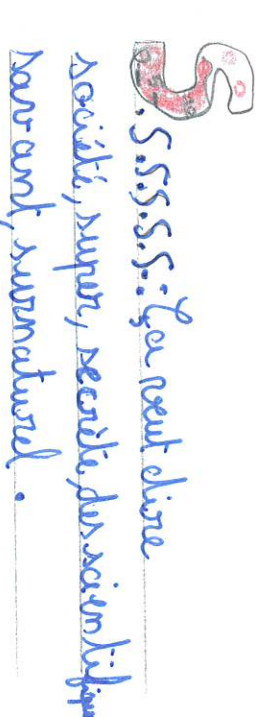 S.S.S.S.S.: Ça veut dire
société, super, secrète, des scientifique
savant, surnaturel.